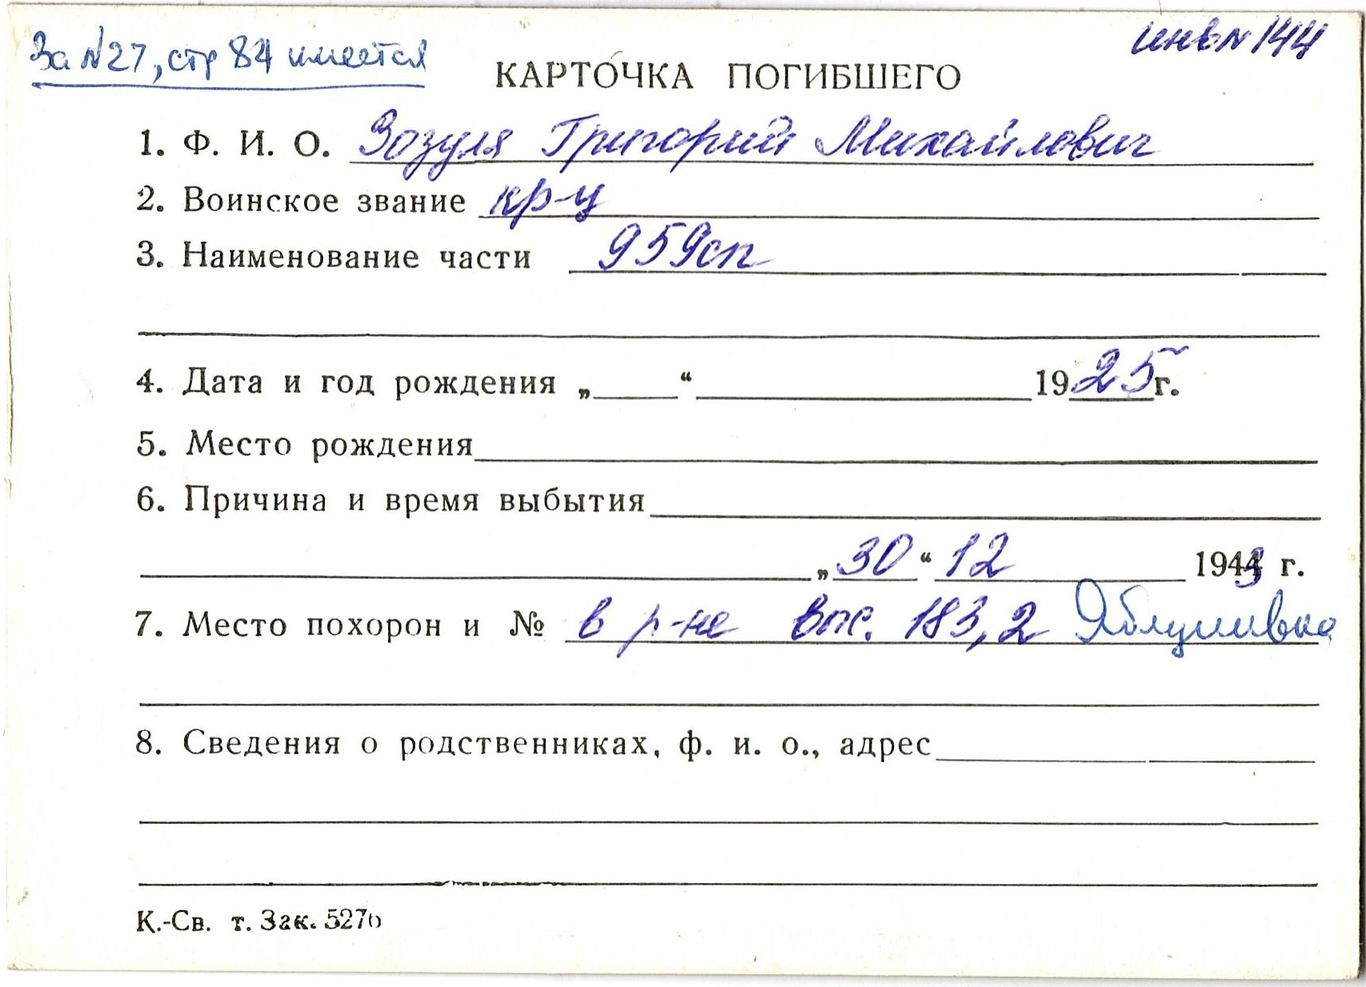 За №27, стр 84 имеется
инв № 144
КАРТОЧКА ПОГИБШЕГО
1. Ф. И. О. Зозуля Григорий Михайлович
2. Воинское звание кр-ц
3. Наименование части 959сп
4. Дата и год рождения „ “ 1925 г.
5. Место рождения
6. Причина и время выбытия
„30“ 12 1943 г.
7. Место похорон и № в р-не выс. 183,2 Яблунивка
8. Сведения о родственниках, ф. и. о., адрес
К.-Св. т. Зак. 5276